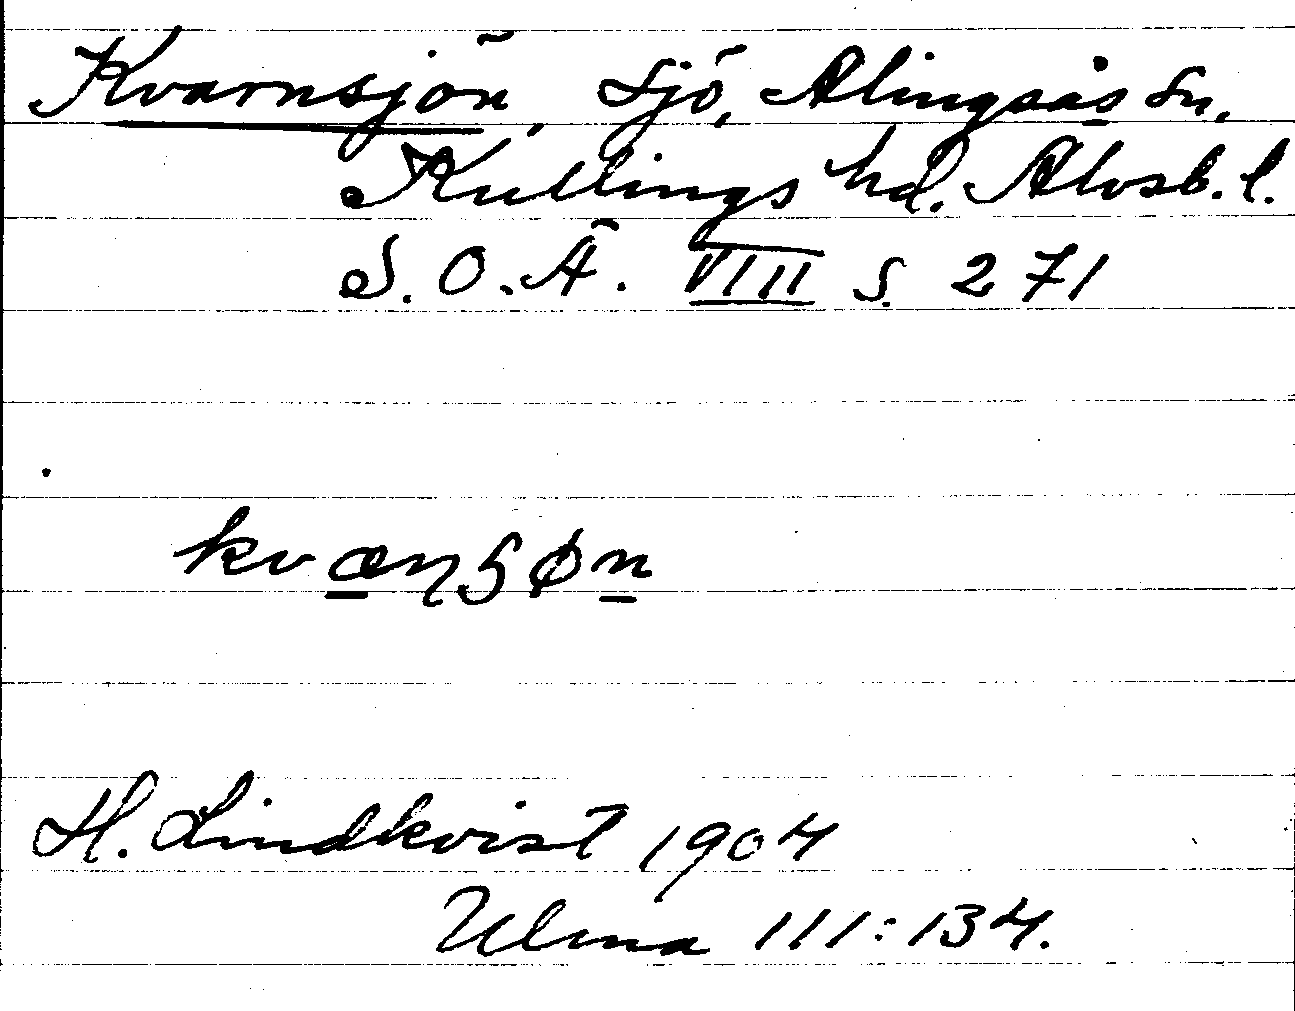 Kvarnsjön, sjö, Alingsås sn,
Kullings hd. Älvsb. l.
S. O. Ä. VIII s. 271
kvæɳʂøn
H. Lindkvist 1904
Ulma 111:134.